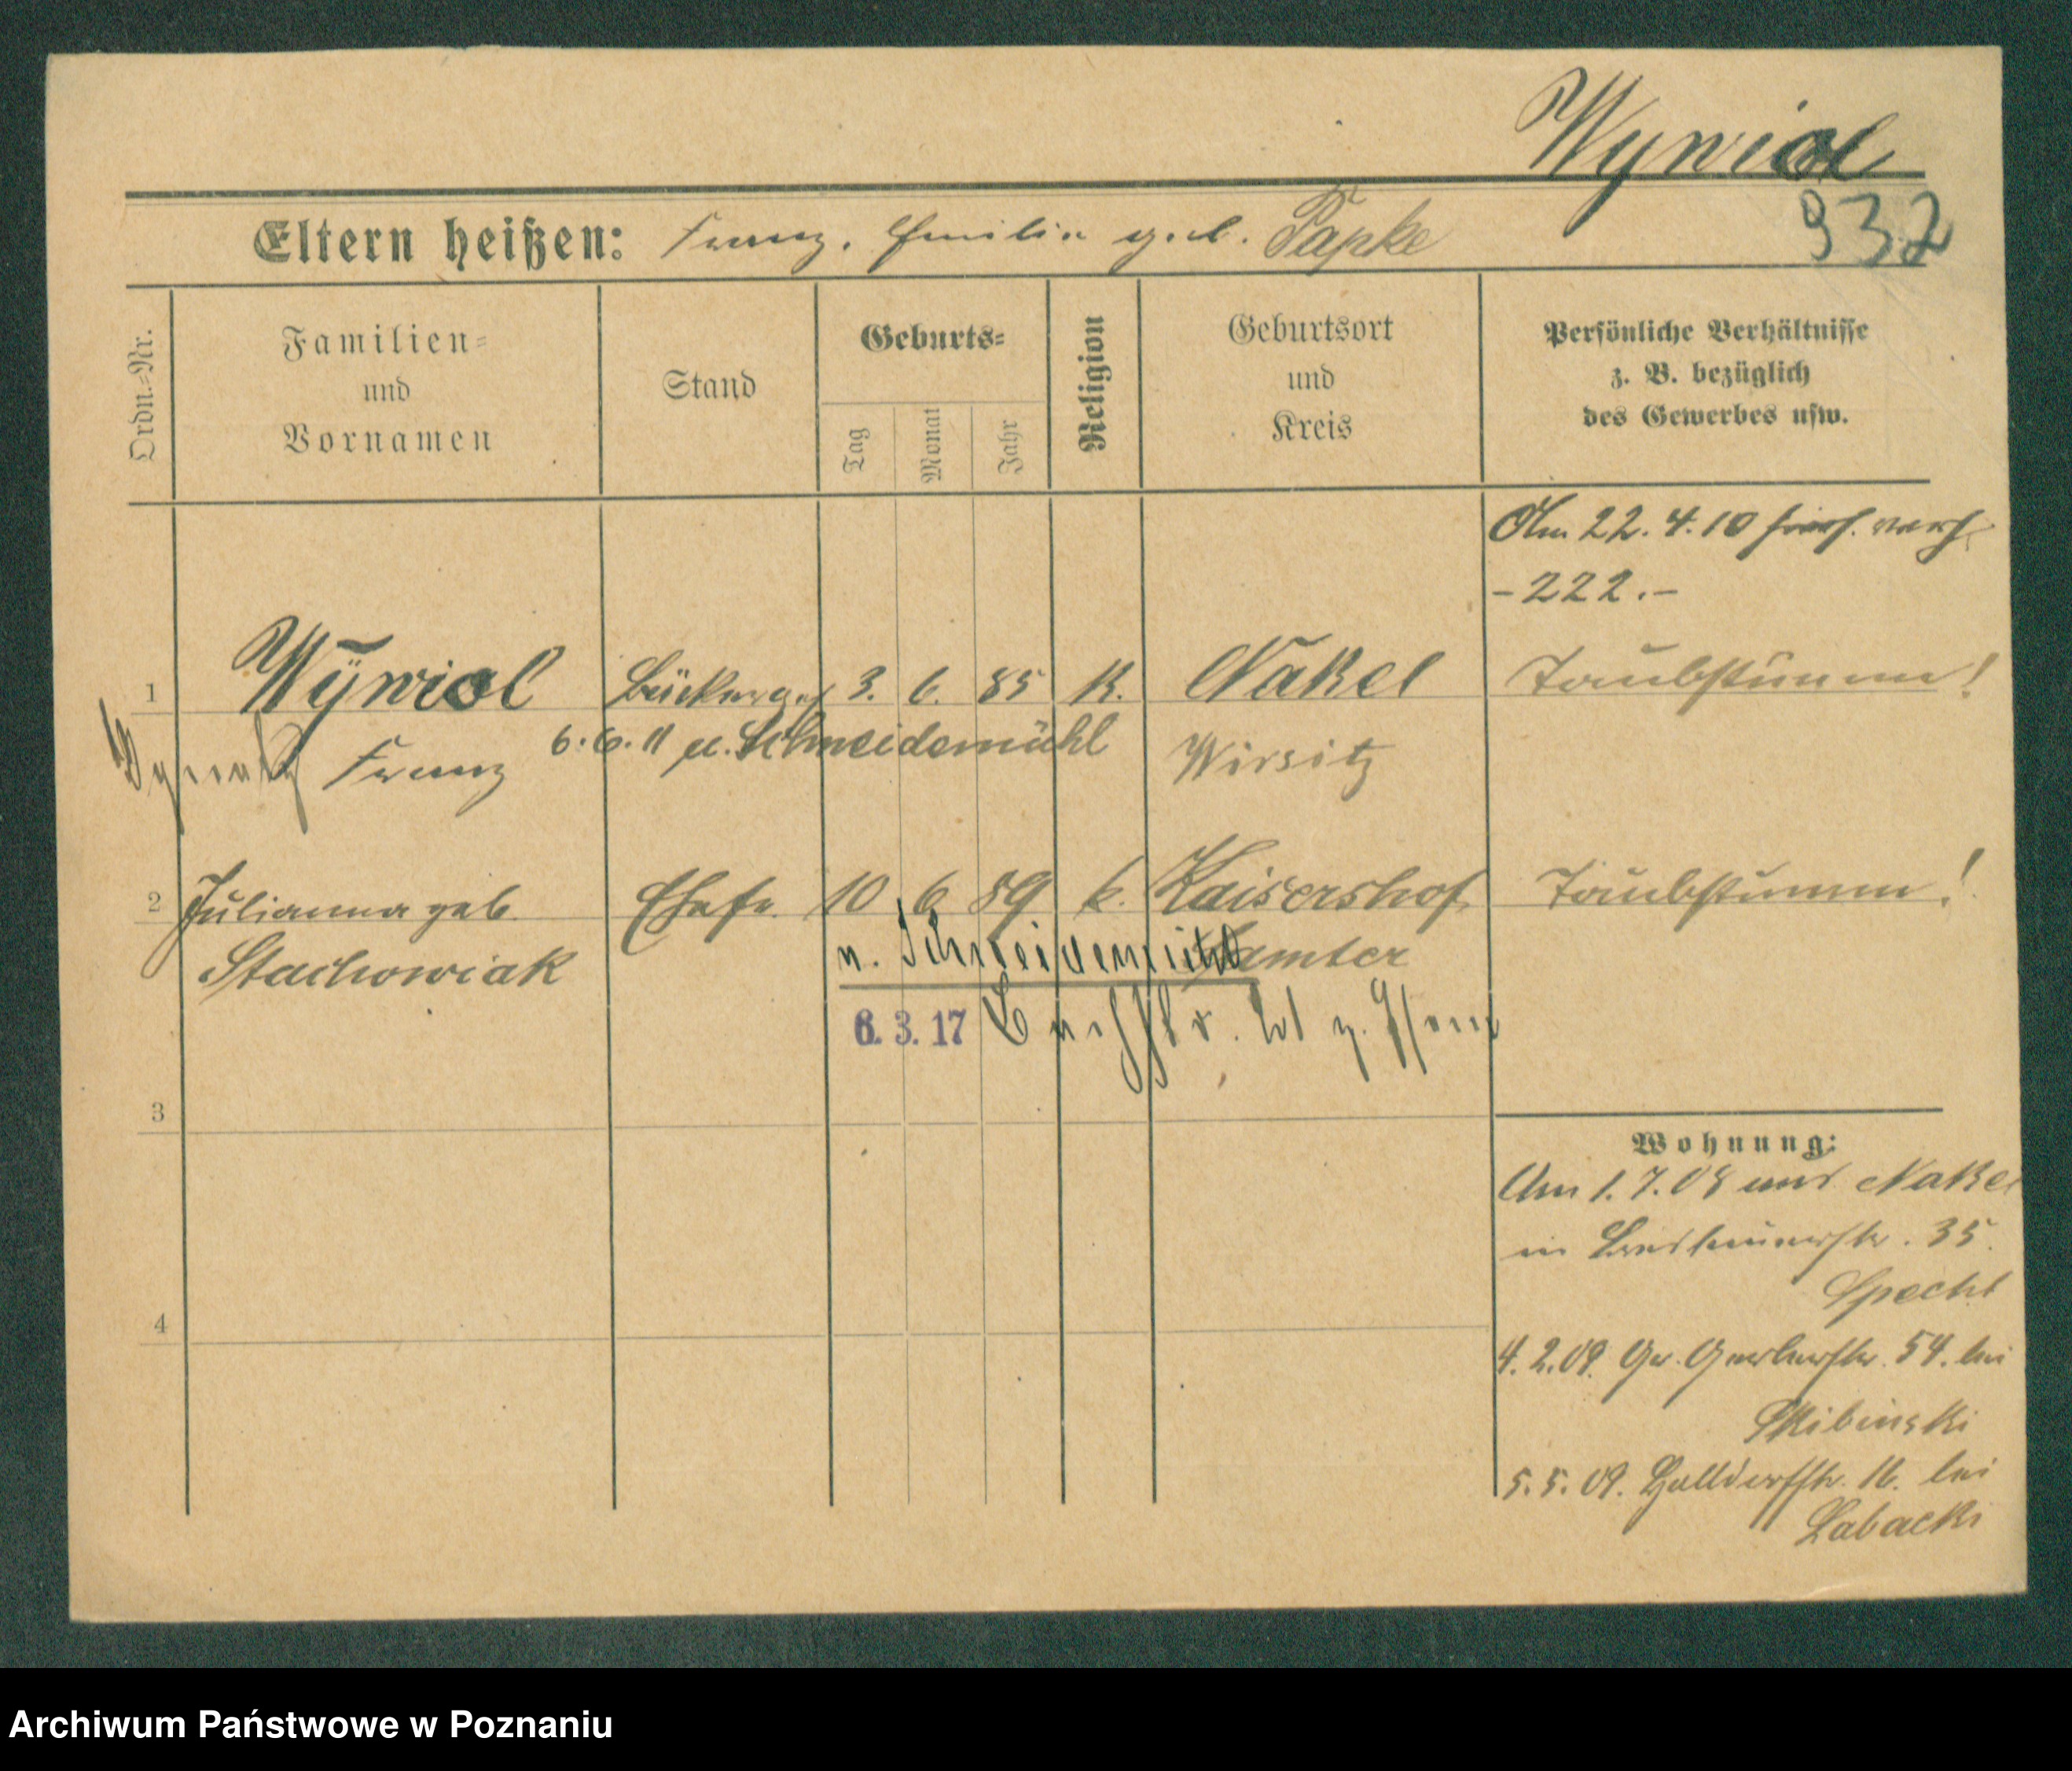 Wywiol
932
Eltern heißen: Franz, Emilie geb. Papke
Ordn.=Nr.
Familien=
und
Vornamen
Stand
Geburts=
Tag
Monat
Jahr
Religion
Geburtsort
und
Kreis
Persönliche Verhältnisse
z. B. bezüglich
des Gewerbes usw.
Am 22. 4. 10
-222.-
1 Wywiol Bäckerges. 3. 6. 85 K. Nakel Taubstumm!
Franz 6. 6. 11 Schneidemühl Wirsitz
2 Julianna geb. Ehefr. 10 6 89 k. Kaisershof Taubstumm!
Stachowiak n. Schneidemühl Samter
6. 3. 17
3
4
Wohnung:
Am 1. 7. 08 aus Nakel
in 35.
Specht
4. 2. 09. Gr. Gerberstr. 54. bei
Skibinski
5. 5. 09. Halldorffstr. 16. bei
Labacki
Archiwum Państwowe w Poznaniu